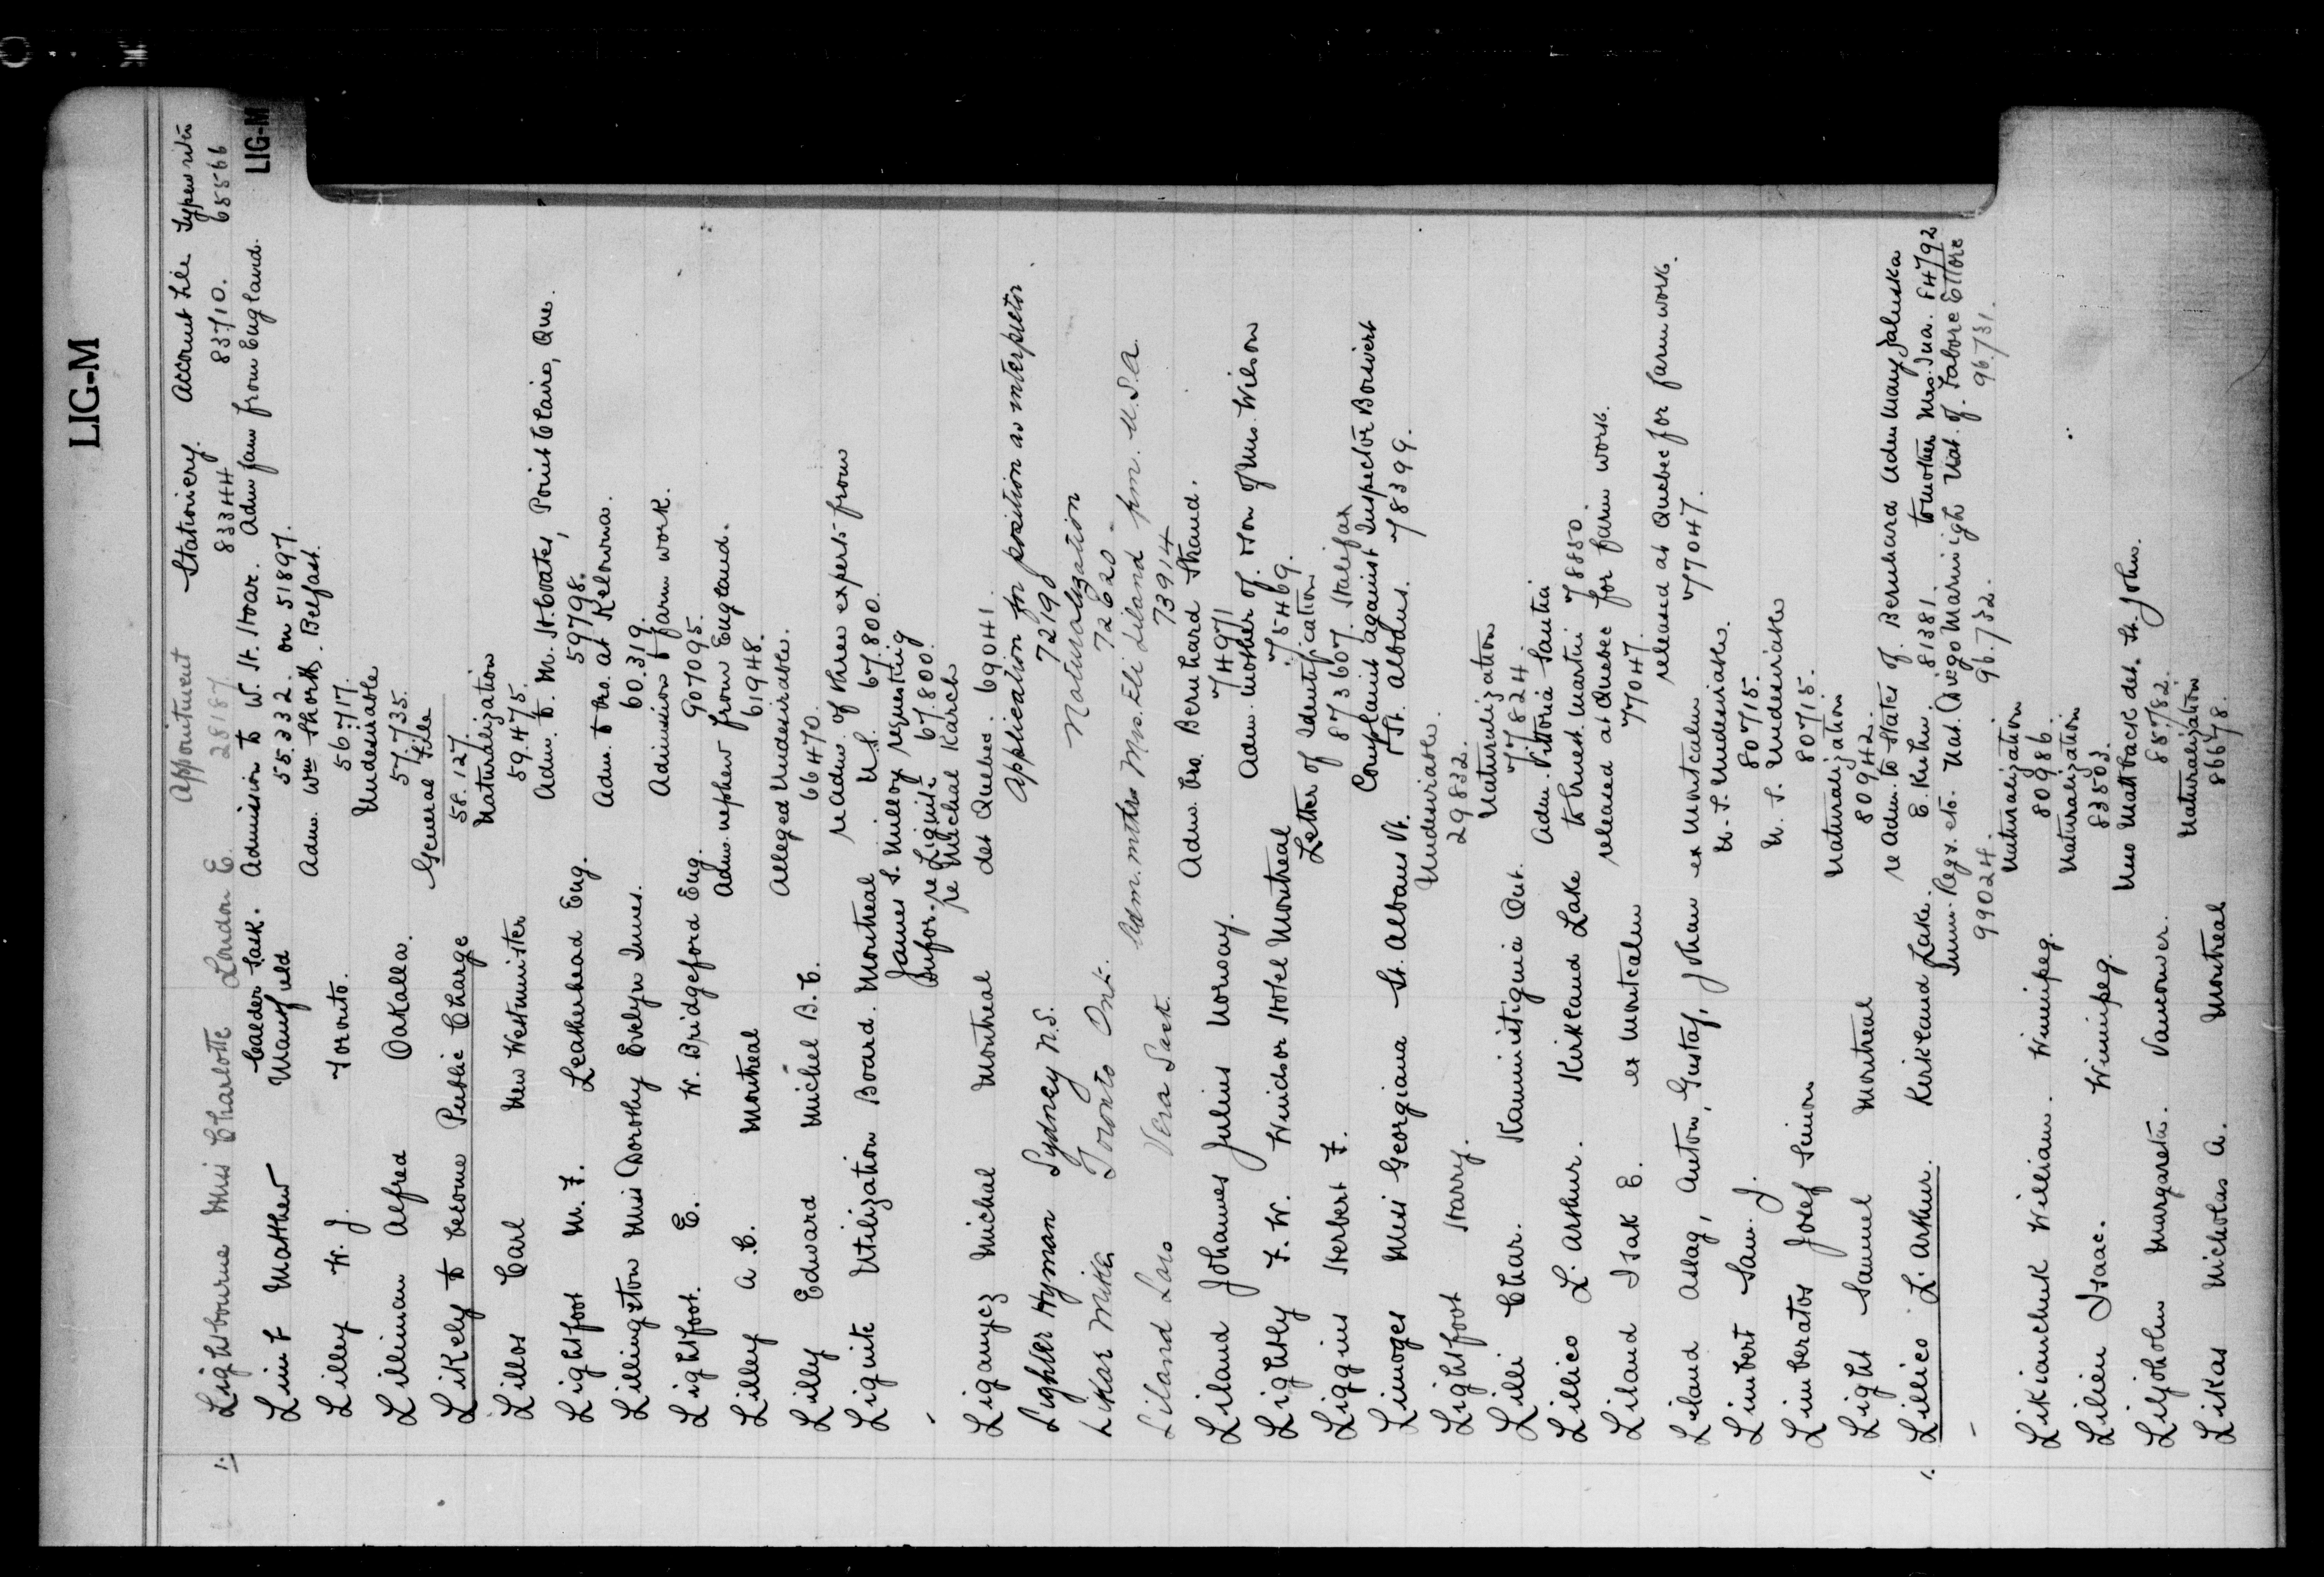 LIG-M
LIG-M
Appointment Stationery. Account File Typewriter
1. Lightbourne Miss Charlotte London E. 28187 83344 83710. 65566
Limt Matthew Calder Sask. Admission to W. H. Hoar. Adm fam from England.
Mansfield 55332. on 51897.
Lilley W. J. Toronto. Adm. Wm Shortt. Belfast.
56717.
Lilliman Alfred Oakalla. Undesirable
57735.
Likely to become Public Charge General File
58.127.
Lillos Carl New Westminster Naturalization
59.475.
Lightfoot M. F. Leatherhead Eng. Adm. to M. St. Coates, Point Claire, Que.
59798.
Lillington Miss Dorothy Evelyn Innes. Adm. to bro. at Kelowna.
60.319.
Lightfoot. E. W. Bridgeford Eng. Admission & farm work.
907095.
Lilley A. C. Montreal Adm. nephew from England.
61948.
Lilly Edward Michel B.C. Alleged Undesirable.
66470.
Lignite Utilization Board. Montreal re Adm. of three experts from
U.S. 67.800.
James S. Milloy requesting
infor. re Lignite 67.800.
Liganycz Michal Montreal re Michal Karch
det Quebec. 69041.
Lighter Hyman Sydney N.S. Application for position as interpreter
72190
Likar Mike Toronto Ont. Naturalization
72620.
Liland Lars Vera Sask. Adm. mthr Mrs. Eli Liland frm. U.S.A.
73914
Liland Johannes Julius Norway. Adm. bro. Bernhard Strand.
74971
Lightly F. W. Windsor Hotel Montreal Adm. mother of. Son of Mrs. Wilson
75469.
Liggins Herbert F. Letter of Identification
873607. Halifax
Limoges Miss Georgiana St. Albans Vt. Complaint against Inspector Boisvert
St. Albans. 78399.
Lightfoot Harry. Undesirable.
29832.
Lilli Char. Kaministiquia Ont. Naturalization
77824.
Lillico L. Arthur. Kirkland Lake Adm. Vittoria Santia
to Ernest Martin 78850
Liland Isak E. ex Montcalm released at Quebec for farm work.
77047.
Liland Aslag, Anton, Gustaf, Johan ex Montcalm released at Quebec for farm work.
77047.
Limbert Sam. J. U.S. Undesirable.
80715.
Limberatos Josef Simon U.S. Undesirable
80715.
Light Samuel Montreal Naturalization
80942.
1. Lillico L. Arthur. Kirkland Lake. re Adm. to States of. Bernhard Adm Mary Jaluska
E. Kuhn. 81381. to mother Mrs. Jua. F4792
Imm. Regs. etc. Nat. Dvego Marinigh Nat. of. Fabore Ettore
99024. 96.732. 96.731.
Likianchuk William. Winnipeg. Naturalization
80986.
Lilien Isaac. Winnipeg. Naturalization
83503.
Liljoholm Margareta. Vancouver. Uno Mattback det. St. John.
885782.
Likas Nicholas A. Montreal Naturalization
86678.